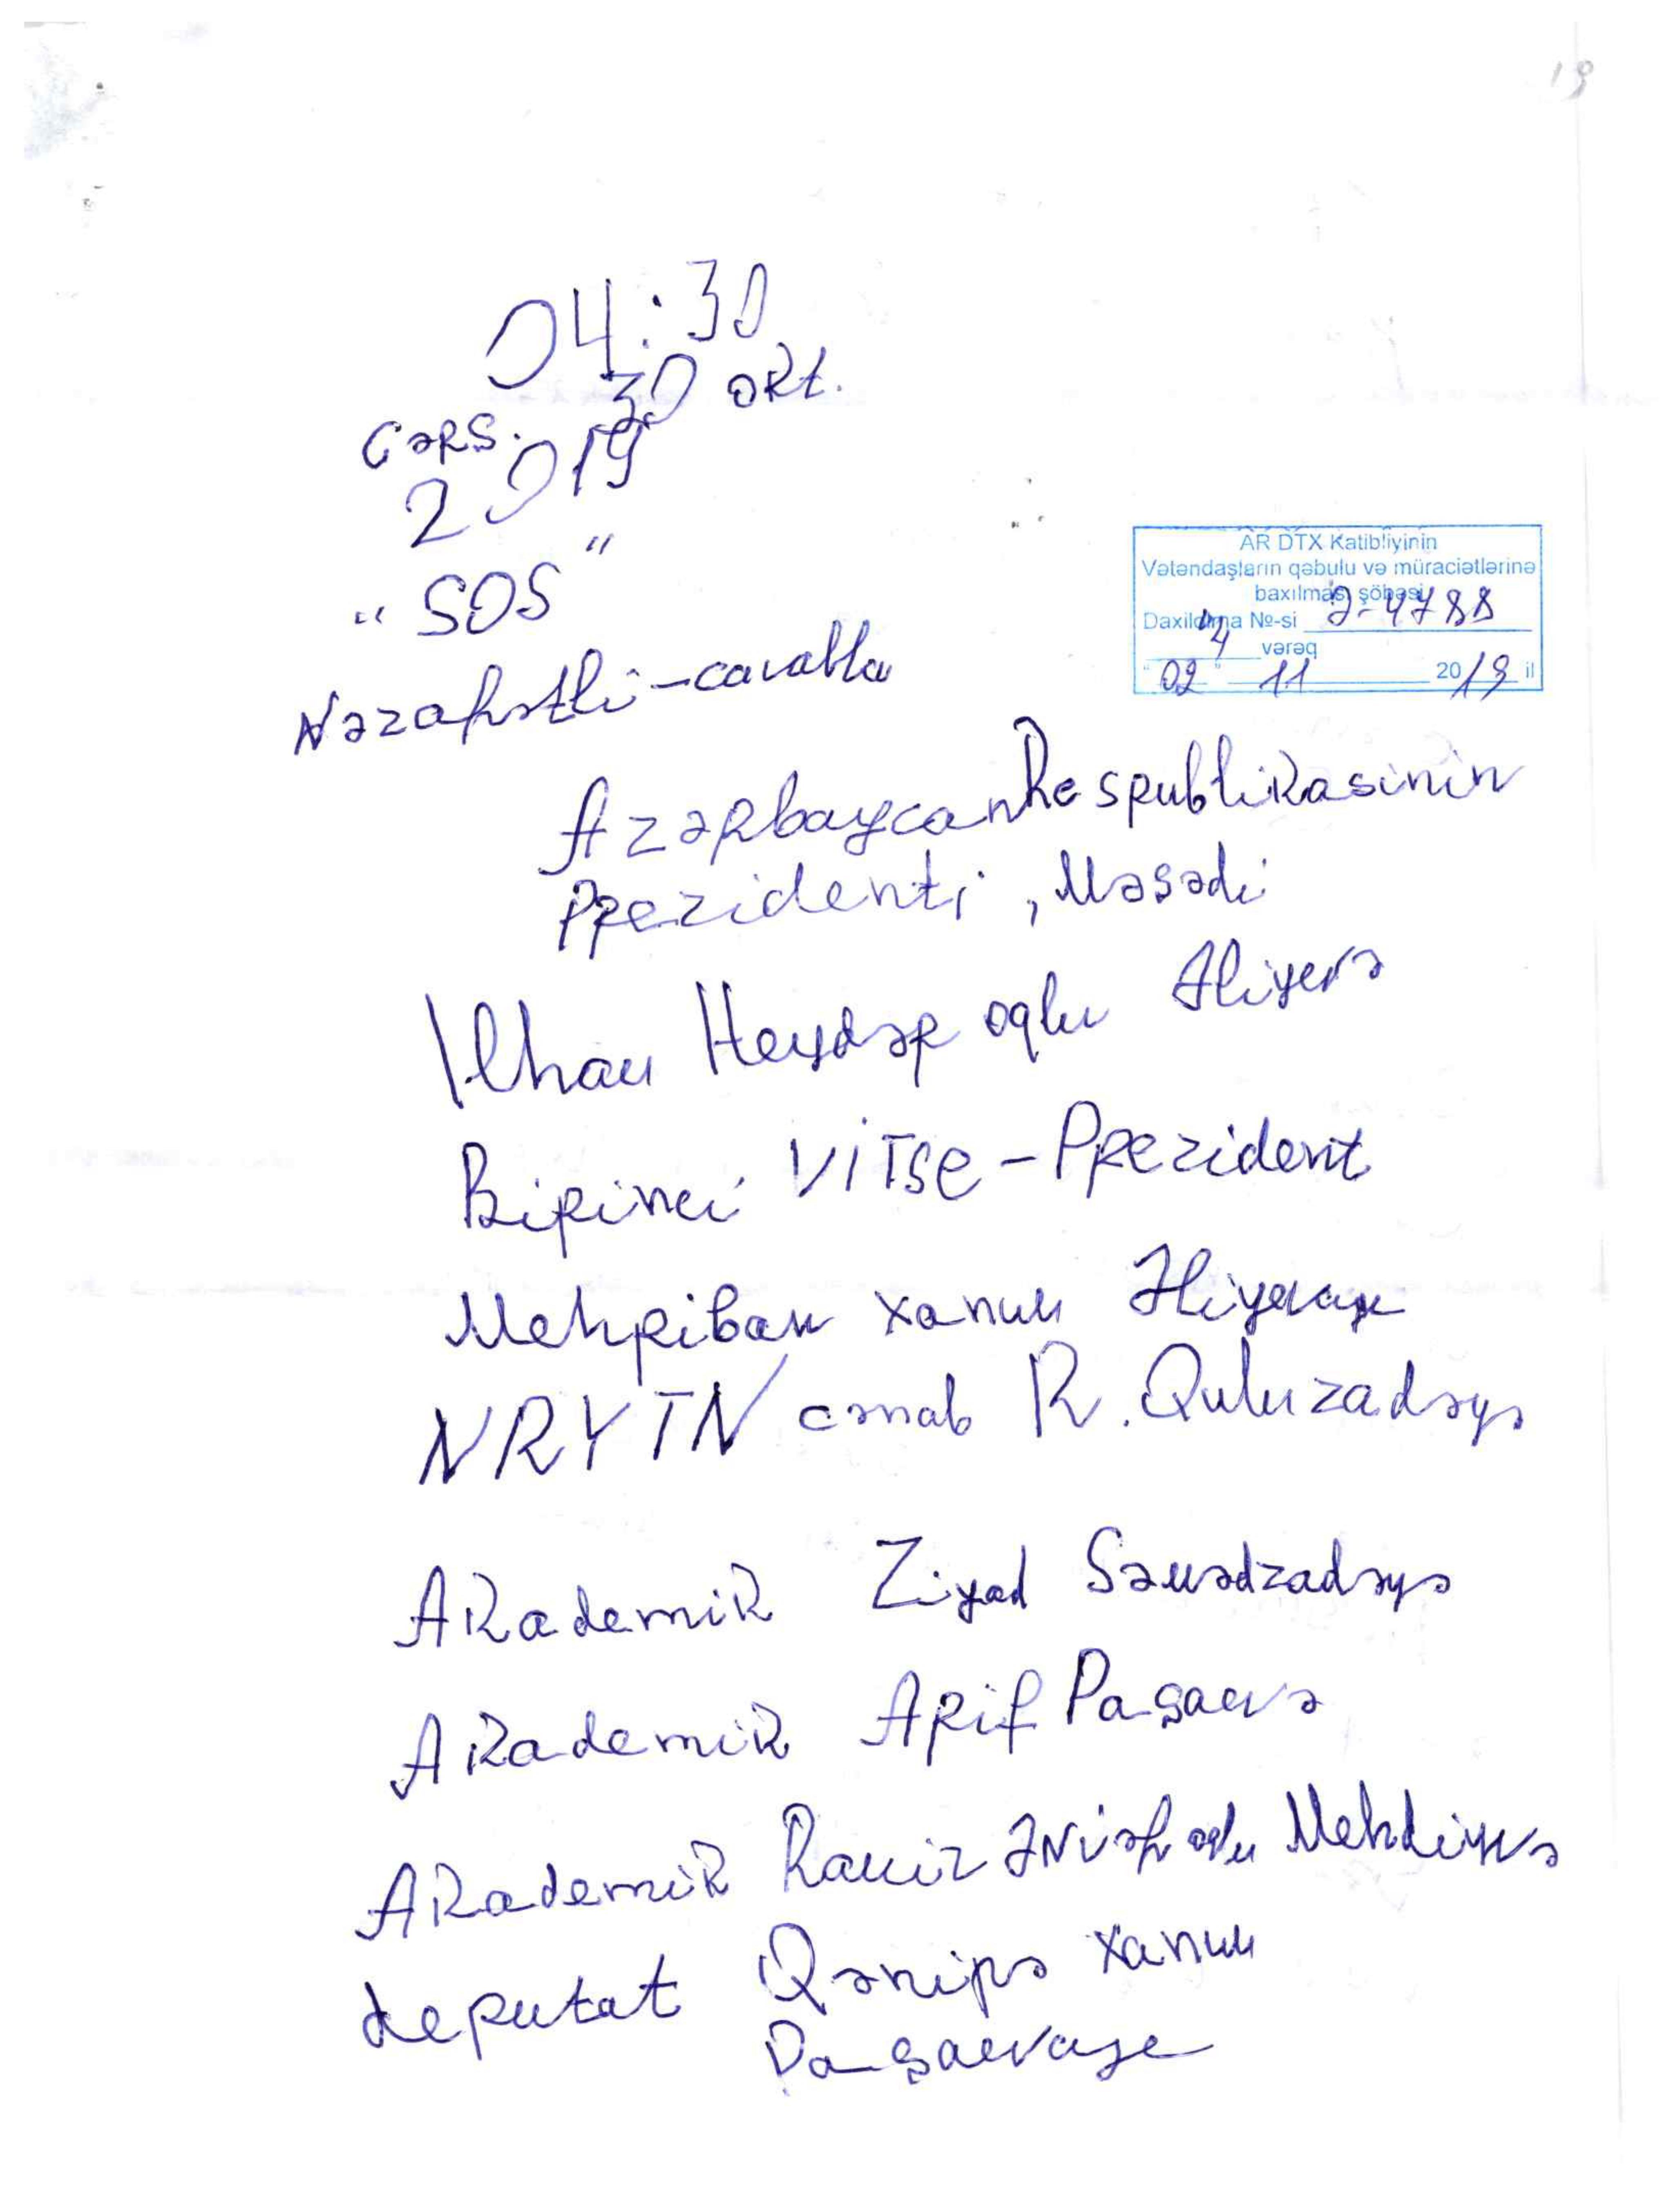 19
04:30
30 okt.
Cərş.
2019
"SOS"
AR DTX Katibliyinin
Vətəndaşların qəbulu və müraciətlərinə
baxılması şöbəsi
Daxilolma №-si Ə-4788
4 vərəq
"02" 11 2019 il
Nəzarətli-cavabla
Azərbaycan Respublikasinin
Prezidenti, Məşədi
Ilham Heydər oğlu Əliyevə
Birinci Vitse-Prezident
Mehriban xanım Əliyevaya
NRYTN cənab R. Quluzadəyə
Akademik Ziyad Səmədzadəyə
Akademik Arif Paşaevə
Akademik Ramiz Ənvər oğlu Mehdiyevə
deputat Qənirə xanım
Paşaevaya